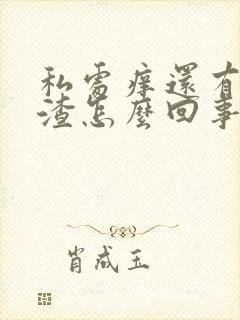 私處痒還有
渣怎麼回事
肖成玉